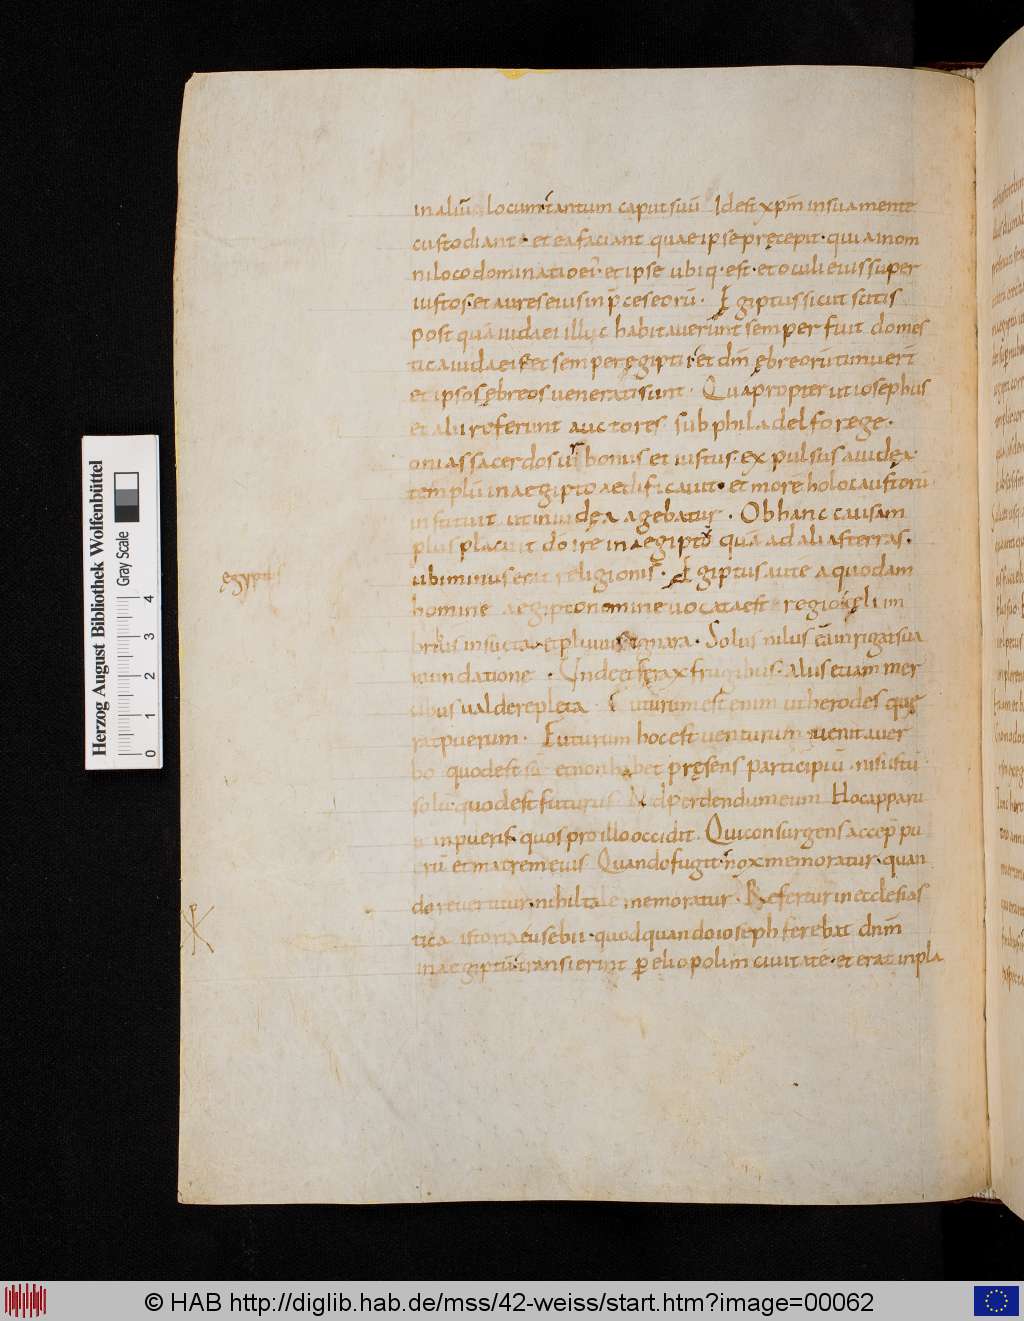 in aliū locum tantum caput suū Idest xp̄m in sua mente
custodiant · et ea faciant quae ipse pręcepit · qui a in om
ni loco dominatio ei᾽ · et ipse ubiq · est · et oculi eius super
iustos · et aures eius in p̄ces eorū · Egiptus sicut scitis
post quā iudaei illuc habitauerunt semper fuit domes
tica iudaeis et semper ęgiptii et dm̄ ębreorū timuer̄
et ipsos ębreos uenerati sunt · Quapropter ut iosephus
et alii referunt auctores sub philadelfo rege ·
onias sacerdos uir bonus et iustus · expulsus a iudęa ·
templū in aegipto aedificauit · et more holocaustorū
instituit ut in iudęa agebatur · Ob hanc causam
plus placuit dō ire in aegiptō quā ad alias terras ·
ubi minus erit religionis · Egiptus aūte a quodam
homine aegipto nomine uocata est regio cęli im
bribus insueta · et pluuiarum ignara · Solus nilus eām rigat sua
inundatione · Unde et ferax frugibus · aliis etiam mer
cibus ualde repleta · Futurum est enim ut herodes quę
rat puerum · Futurum hoc est uenturum · uenit a uer
bo quod est sū et non habet pręsens participiū · nisi istū
solū · quod est futurus Ad perdendum eum Hoc apparu
it in pueris · quos pro illo occidit · Qui consurgens accep̄ pu
erū et matrem eius Quando fugit · nox memoratur · quan
do reuertitur · nihil tale memoratur · Refertur in ecclesias
tica istoria eusebii · quod quando ioseph ferebat dn̄m
in aegiptū · transierint per eliopolim ciuitate · et erat in pla
ęgyptus
Herzog August Bibliothek Wolfenbüttel
Gray Scale
0 1 2 3 4
© HAB http://diglib.hab.de/mss/42-weiss/start.htm?image=00062